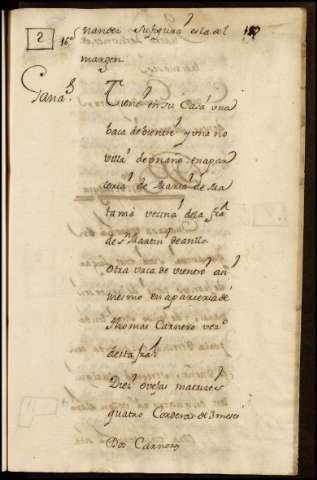 2
nandez su figura es la del
margen
Ganas
Tiene en su Casa una
baca de vientre y una no
villa de mano en apar
ceria de Maria de Ma
tama vecina de la fra
de Sn Martin de
Otra vaca de vientre asi
mesmo en aparceria de
Thomas Carnero veo
desta fra
Diez ovejas matrices
quatro Corderos de 3 meses
Dos Carneros